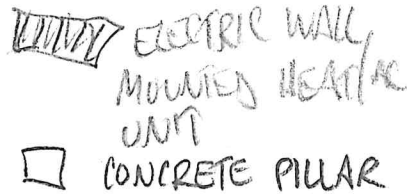 ELECTRIC WALL
MOUNTED HEAT/AC
UNIT
CONCRETE PILLAR